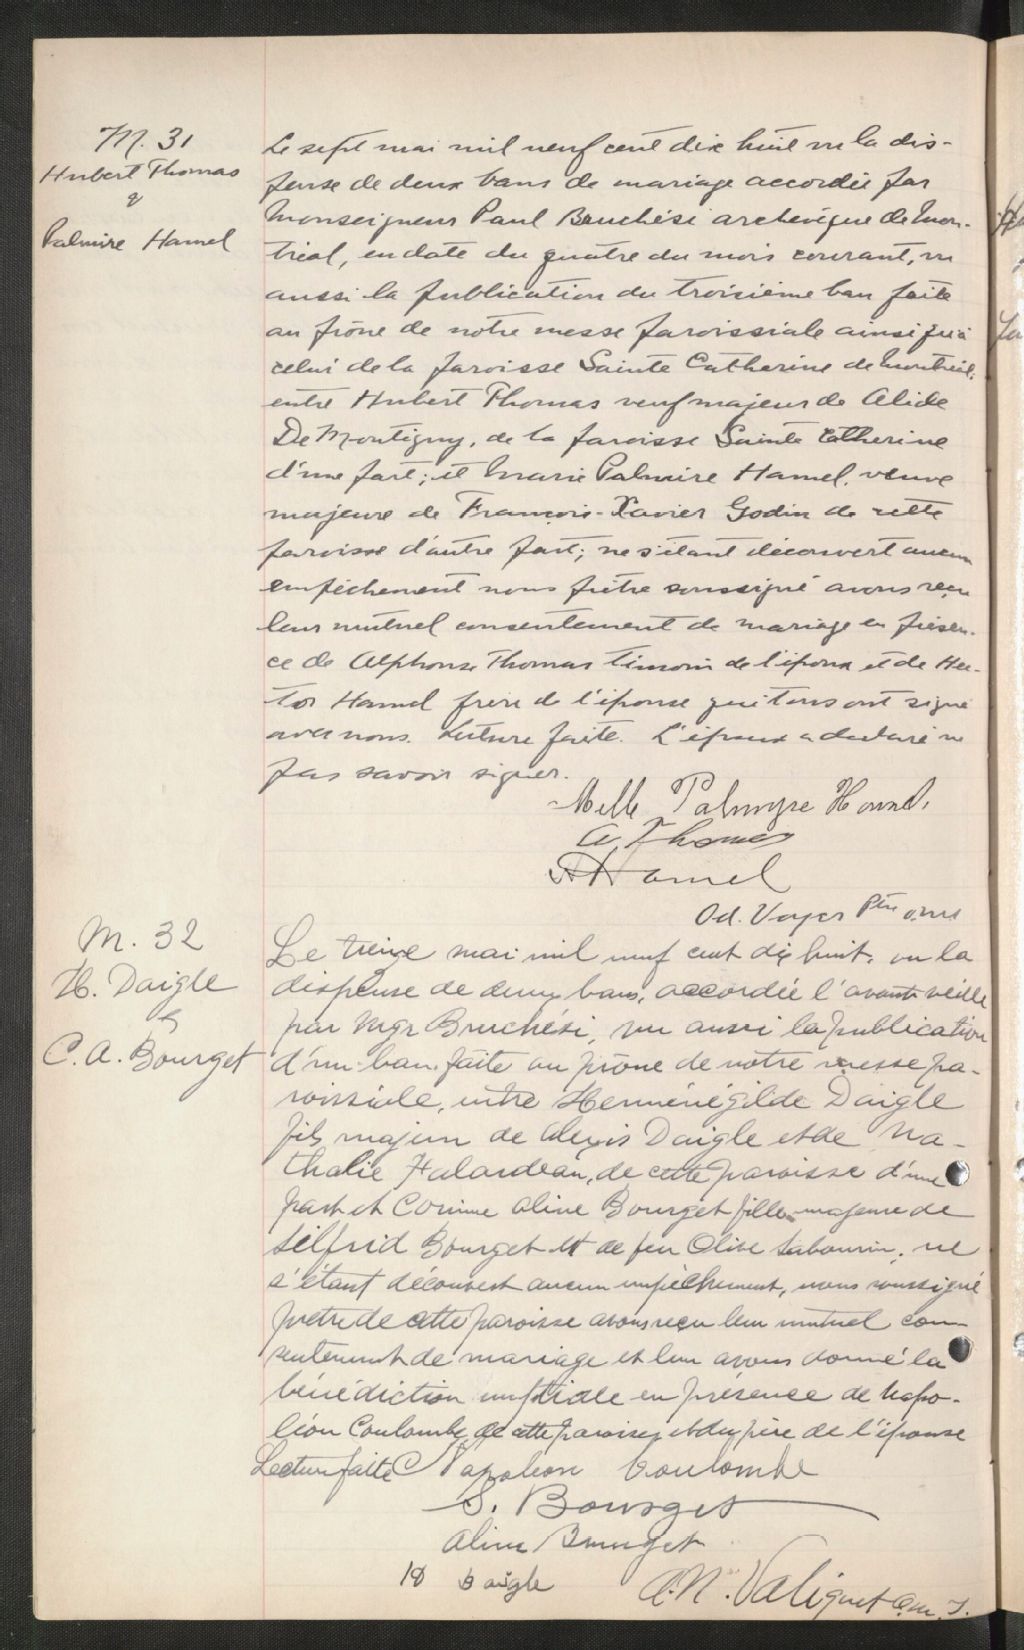 M. 31
Hubert Thomas
&
Palmire Hamel
Le sept mai mil neuf cent dix huit vu la dis-
pense de deux bans de mariage accordée par
Monseigneur Paul Bruchési archevêque de Mon-
tréal, en date du quatre du mois courant, vu
aussi la publication du troisième ban faite
au prône de notre messe paroissiale ainsi qu'à
celui de la paroisse Sainte Catherine de Montréal,
entre Hubert Thomas veuf majeur de Alide
De Montigny, de la paroisse Sainte Catherine
d'une part; et Marie Palmire Hamel, veuve
majeure de François-Xavier Godin de cette
paroisse d'autre part; ne s'étant découvert aucun
empêchement nous prêtre soussigné avons reçu
leur mutuel consentement de mariage en présen-
ce de Alphonse Thomas témoin de l'époux et de Hec-
tor Hamel frère de l'épouse qui tous ont signé
avec nous. Lecture faite. L'époux a déclaré ne
pas savoir signer.
Melle Palmyre Hamel.
A. Thomas
H Hamel
Od. Voyer Ptre o.m.i
M. 32
H. Daigle
&
C. A. Bourget
Le treize mai mil neuf cent dix huit, vu la
dispense de deux bans, accordée l'avant veille
par Mgr Bruchési, vu aussi la publication
d'un ban faite au prône de notre messe pa-
roissiale, entre Herménégilde Daigle
fils majeur de Alexis Daigle et de Na-
thalie Halardeau, de cette paroisse d'une
part et Corinne Aline Bourget fille majeure de
Silfrid Bourget et de feu Olive Sabourin, ne
s'étant découvert aucun empêchement, nous soussigné
prêtre de cette paroisse avons reçu leur mutuel con-
sentement de mariage et leur avons donné la
bénédiction nuptiale en présence de Napo-
léon Coulombe de cette paroisse, et du père de l'épouse
Lecture faite Napoleon Coulombe
S. Bourget
Aline Bourget
H Daigle
A. N. Valiquet o.m.i.